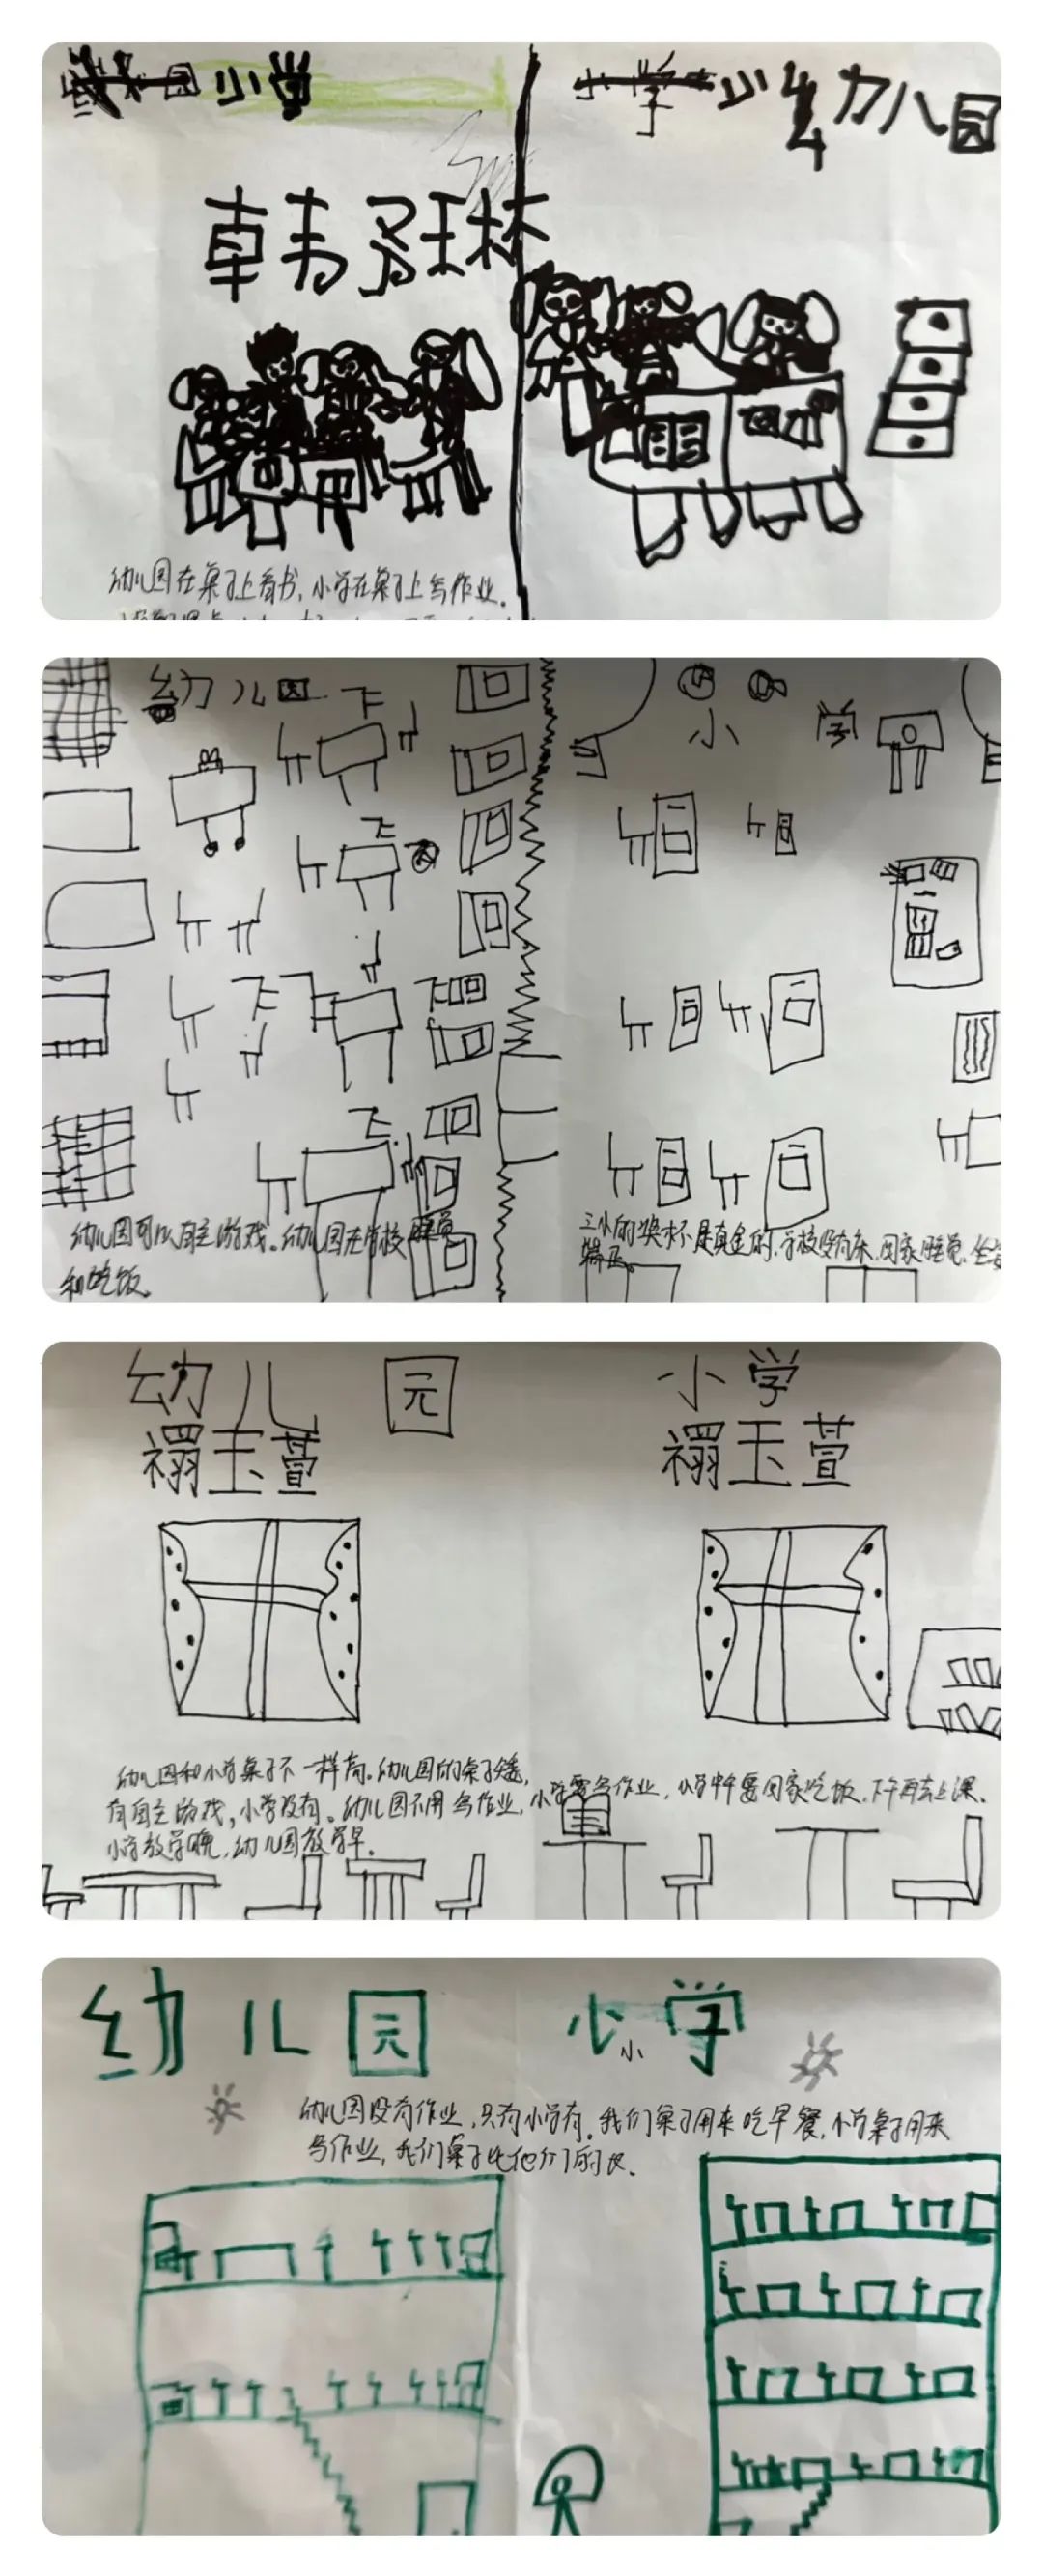 小学
小学
幼儿园
韩子玉林
幼儿园在桌子上看书，小学在桌子上写作业。
幼儿园
小学
幼儿园可以自主游戏。幼儿园在学校睡觉
和吃饭。
三小的奖杯是真金的，学校没有床，回家睡觉，坐
端正。
幼儿园
小学
禤玉萱
禤玉萱
幼儿园和小学桌子不一样高。幼儿园的桌子矮，
有自主游戏，小学没有。幼儿园不用写作业，小学需写作业，小学中午要回家吃饭，下午再去上课。
小学放学晚，幼儿园放学早。
幼儿园
小学
小
幼儿园没有作业，只有小学有。我们桌子用来吃早餐，小学桌子用来
写作业，我们桌子比他们的长。